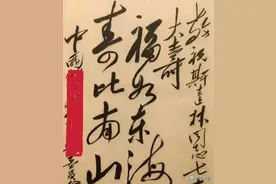 敬祝斯达林同志七十
大寿
福如东海
寿比南山
中国